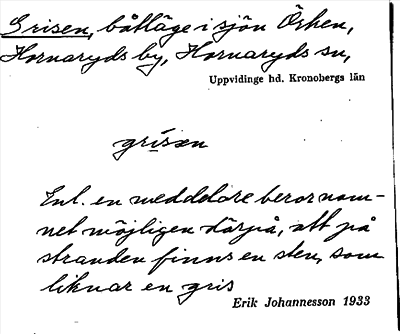 Grisen, båtläge i sjön Örken,
Hornaryds by, Hornaryds sn,
Uppvidinge hd. Kronobergs län
grisæn
Enl. en meddelare beror nam-
net möjligen därpå, att på
stranden finns en sten, som
liknar en gris
Erik Johannesson 1933